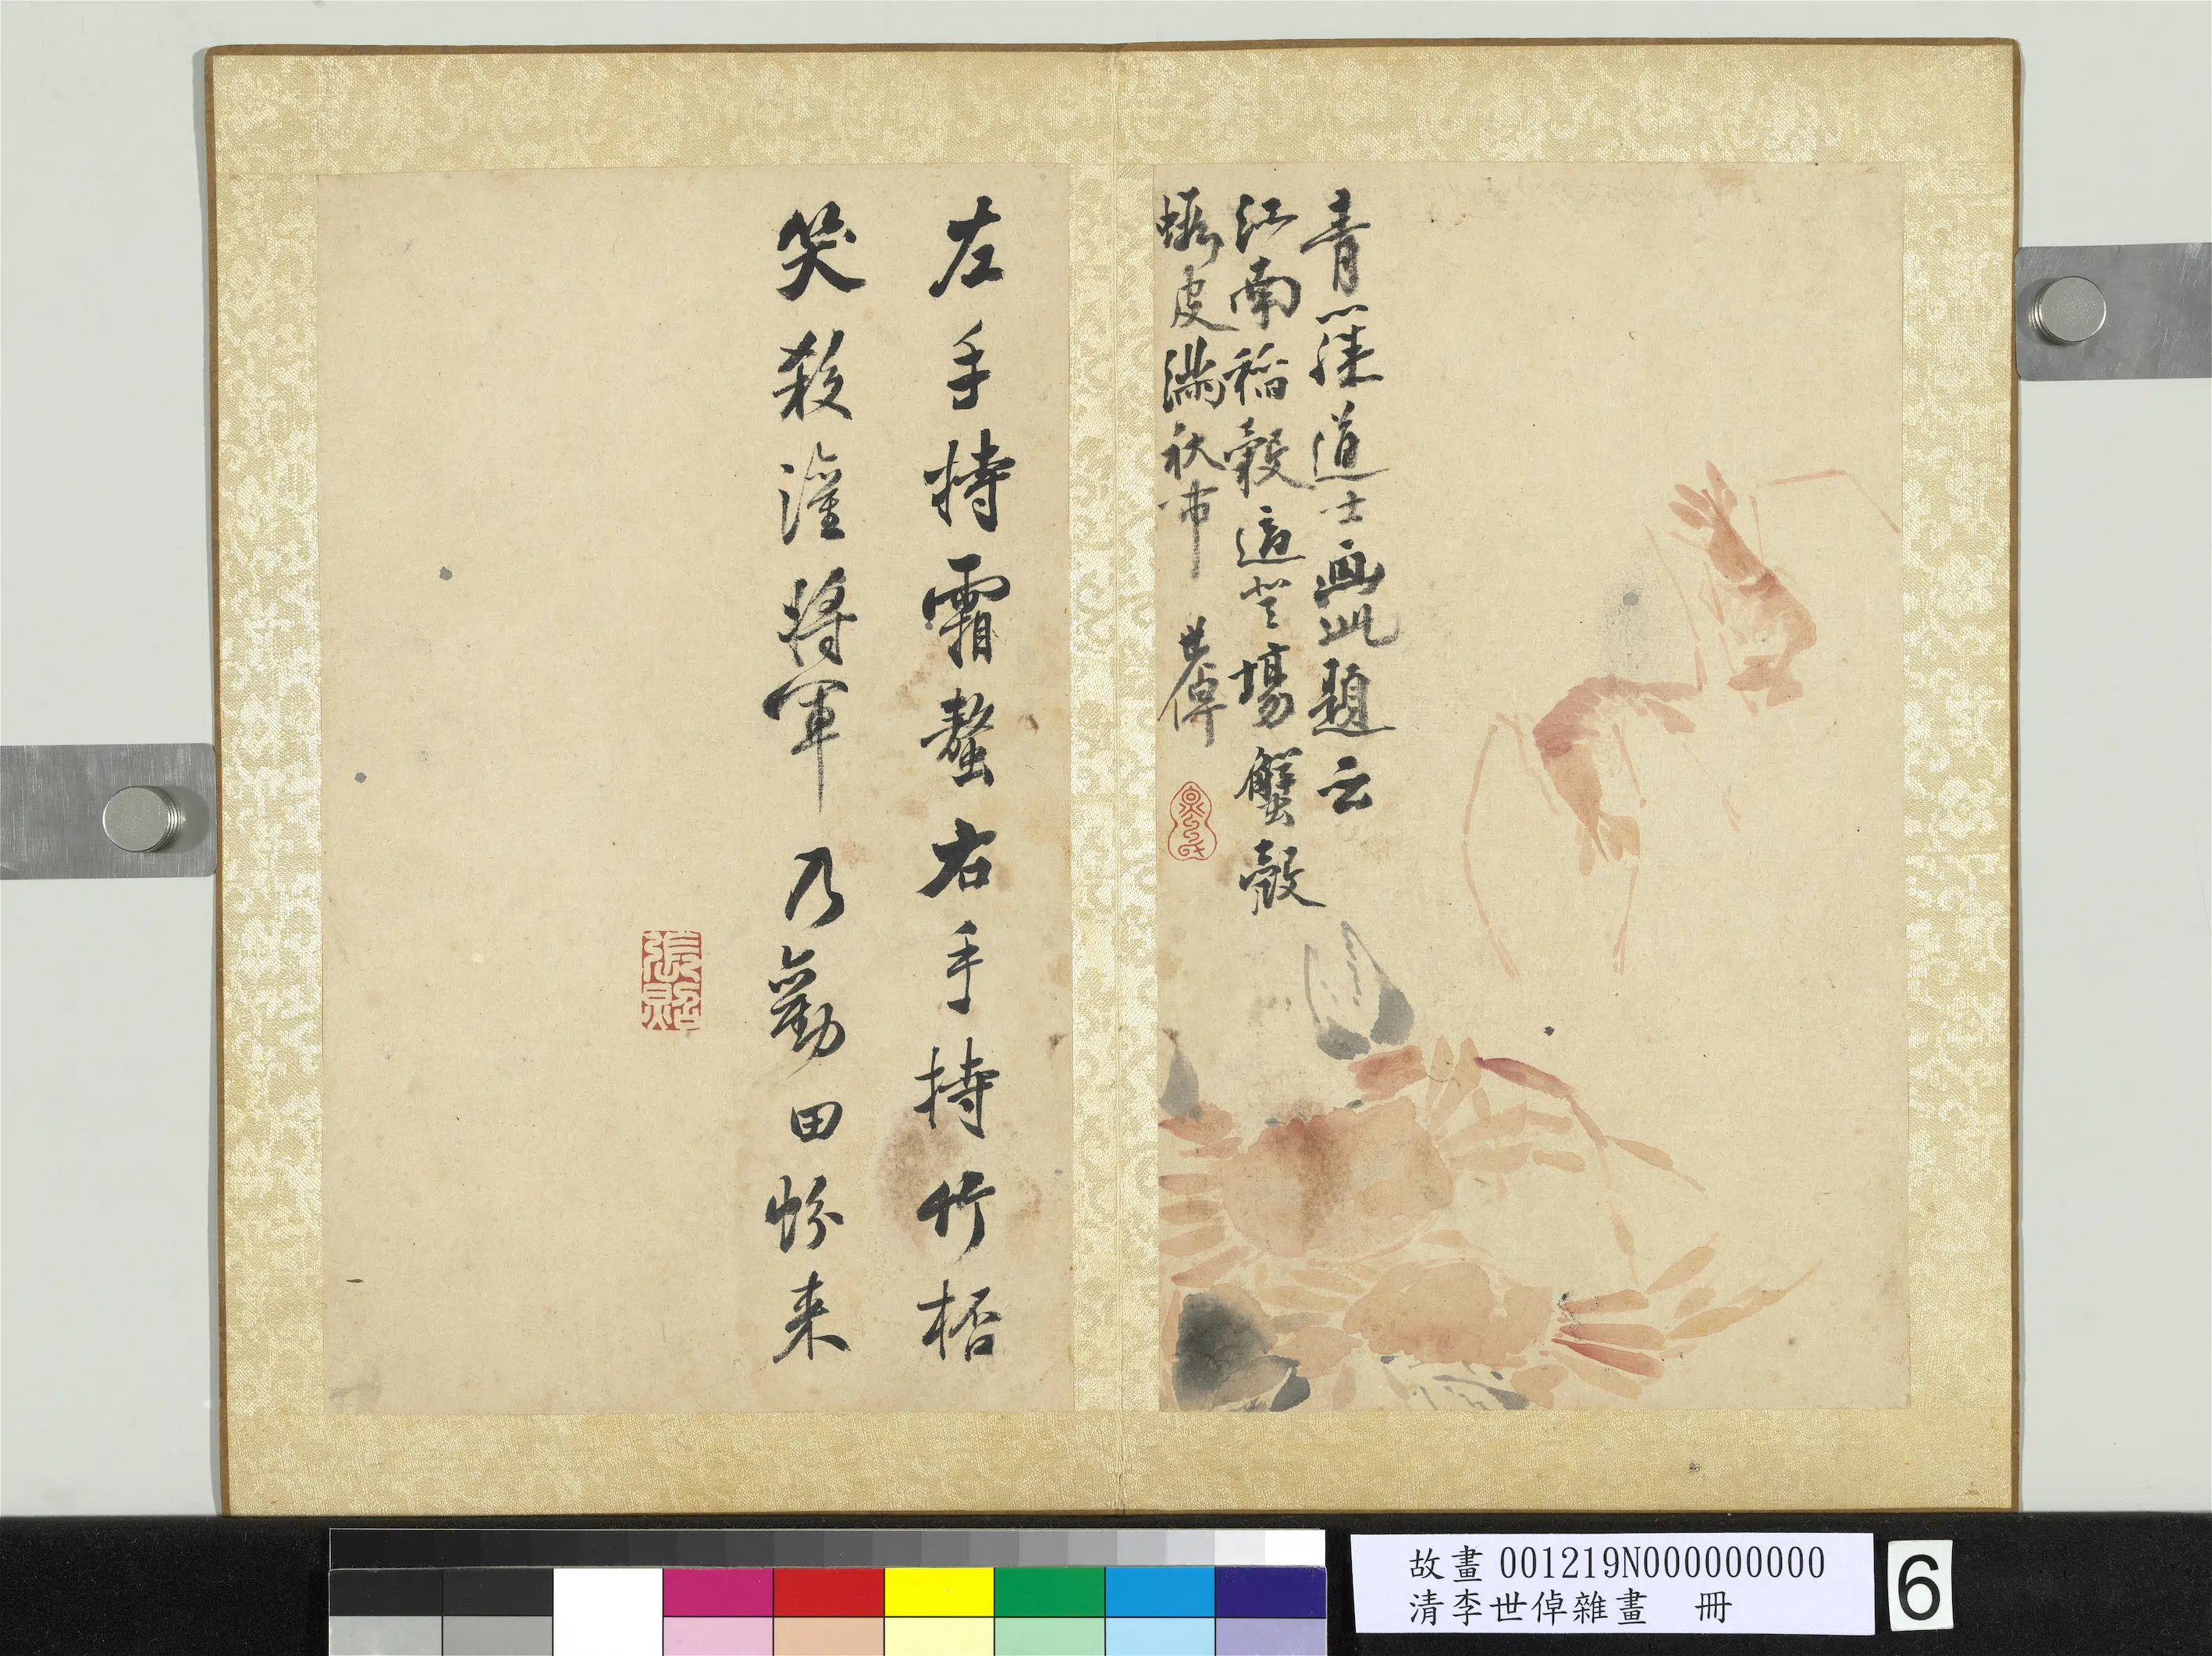 青藤道士畫此題云
江南稻穀適登場蟹殼
蝦皮滿秋市 世倬
左手持霜螯右手持竹桮
笑殺灌將軍乃勸田蚡来
張照
故畫 001219N000000000
清李世倬雜畫 冊
6